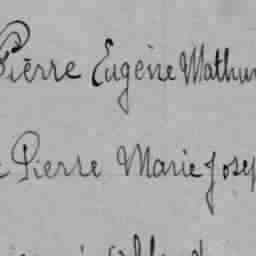 Pierre Eugène Mathur
Pierre Marie Josep